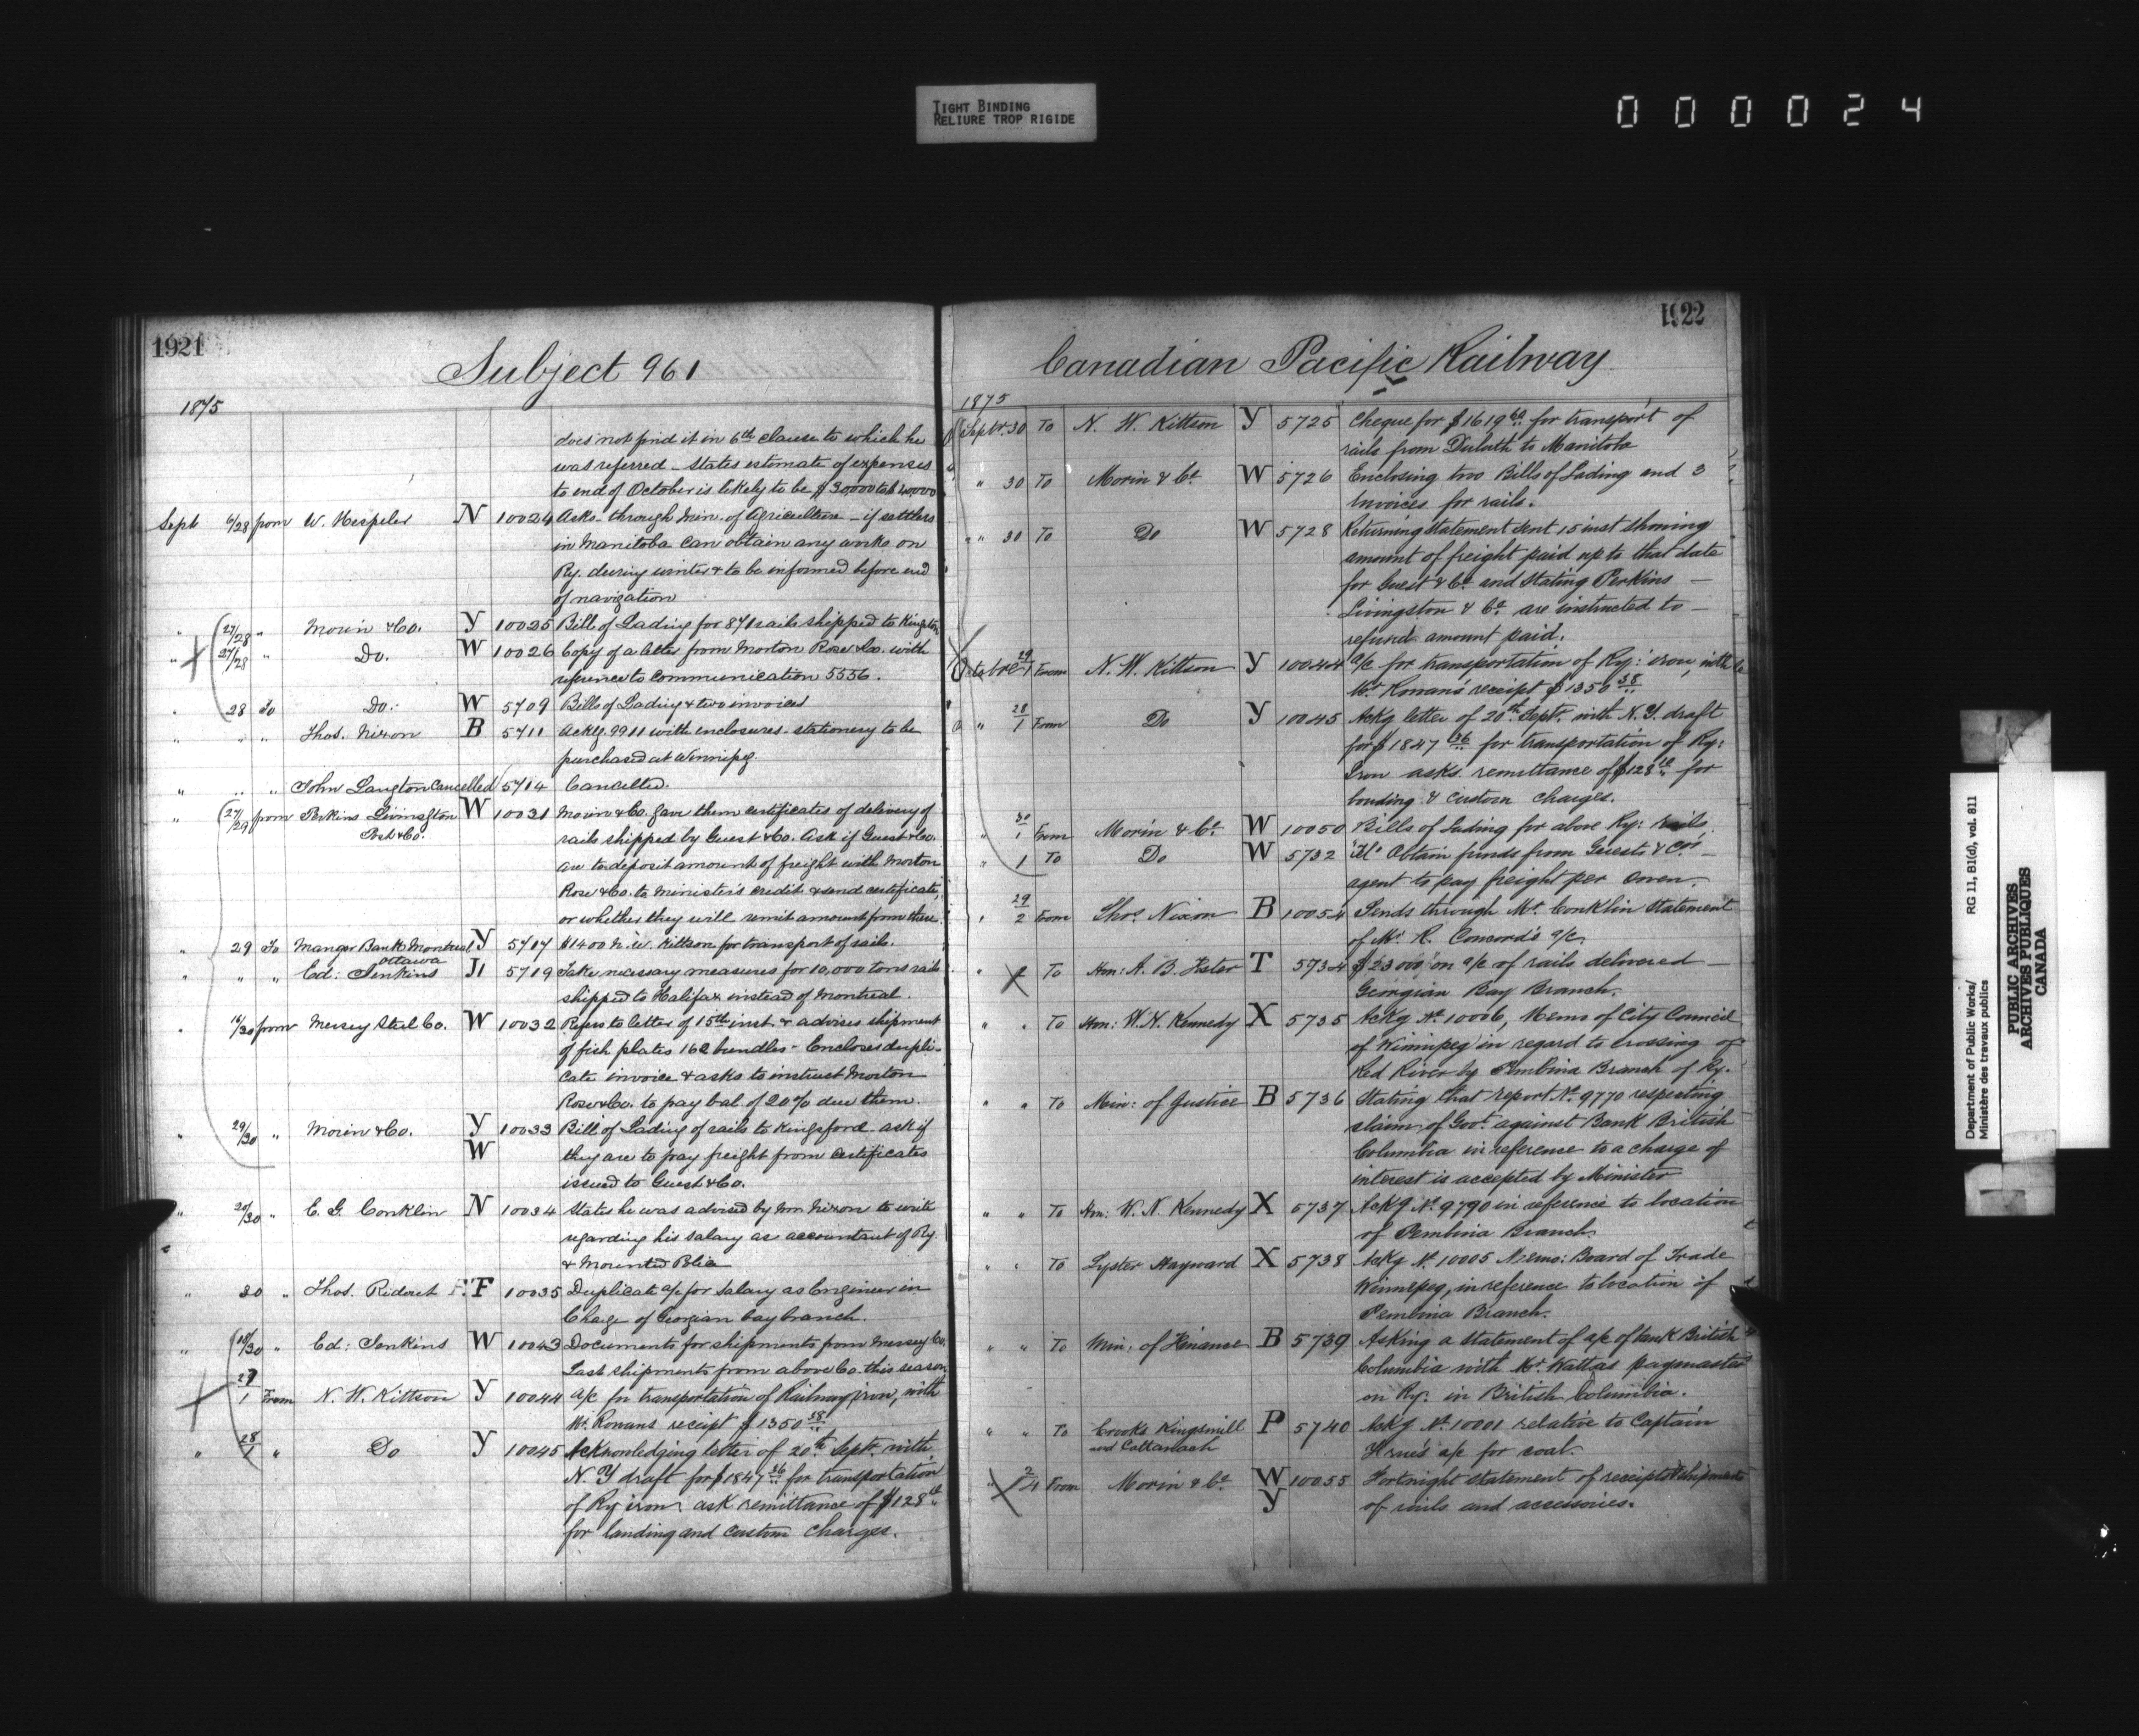 TIGHT BINDING
RELIURE TROP RIGIDE
000024
1921
Subject 961
1875
does not find it in 6th clause to which he
was referred - States estimate of expenses
to end of October is likely to be $30000 to
Sept 6/28 from W. Hespeler N 10024 Asks - through Min. of Agriculture - if settlers
in Manitoba can obtain any works on
Ry. during winter & to be informed before end
of navigation
" 27/28 " Morin & Co. Y 10025 Bill of Lading for 871 rails shipped to Kingston
" 27/28 " Do. W 10026 Copy of a letter from Morton Rose & Co. with
reference to communication 5556.
" 28 To Do. W 5709 Bills of Lading & two invoices
" " " Thos. Nixon B 5711 Ackg 9911 with enclosures - stationery to be
purchased at Winnipeg.
" " " John Langton Cancelled 5714 Cancelled.
" 27/29 from Perkins Livingston W 10031 Morin & Co. gave them certificates of delivery of
Post & Co. rails shipped by Guest & Co. Ask if Guest & Co.
are to deposit amount of freight with Morton
Rose & Co. to Minister's credit & send certificate,
or whether they will remit amount from there.
" 29 To Manger Bank Montreal Y 5717 $1400 N. W. Kittson for transport of rails.
Ottawa
" " " Ed: Jenkins J1 5719 Take necessary measures for 10,000 tons rails
shipped to Halifax instead of Montreal.
" 16/30 from Mersey Steel Co. W 10032 Refers to letter of 15th inst. & advises shipment
of fish plates 162 bundles - Encloses dupli-
cate invoice & asks to instruct Morton
Rose & Co. to pay bal. of 20% due them.
" 29/30 " Morin & Co. Y 10033 Bill of Lading of rails to Kingsford - ask if
W they are to pay freight from certificates
issued to Guest & Co.
" 20/30 " C. G. Conklin N 10034 States he was advised by Mr Nixon to write
regarding his salary as accountant of Ry.
& Mounted Police
" 30 " Thos. Ridout F 10035 Duplicate a/c for salary as Engineer in
Charge of Georgian bay branch.
" 18/30 " Ed: Jenkins W 10043 Documents for shipments from Mersey Co.
Last shipments from above Co. this season
27/1 From N. W. Kittson Y 10044 a/c for transportation of Railway iron, with
Mr. Rowans receipt $1350 38
" 28/1 " Do Y 10045 Acknowledging letter of 20th Sept. with
N. Y draft for $1847 36 for transportation
of Ry iron ask remittance of $128
for landing and custom charges.
1922
Canadian Pacific Railway
1875
Septr. 30 To N. W. Kittson Y 5725 Cheque for $1619 60 for transport of
rails from Duluth to Manitoba
" 30 To Morin & Co. W 5726 Enclosing two Bills of Lading and 3
Invoices for rails.
" 30 To Do W 5728 Returning statement sent 15 inst showing
amount of freight paid up to that date
for Guest & Co. and stating Perkins -
Livingston & Co. are instructed to -
refund amount paid.
Octobre 29/1 From N. W. Kittson Y 10044 a/c for transportation of Ry: iron, with
Mr. Rowan's receipt $1350 38
" 28/1 From Do Y 10045 Ackg letter of 20th Sept. with N.Y. draft
for $1847 36 for transportation of Ry:
Iron asks remittance of $128 for
bonding & custom charges.
" 30/1 From Morin & Co. W 10050 Bills of Lading for above Ry: Rails
" 1 To Do W 5732 Tel. Obtain funds from Guests & Co's
agent to pay freight per Owen.
" 29/2 From Thos. Nixon B 10054 Sends through Mr. Conklin statement
of Mr. R. Concord's a/c.
" 2 To Hon: A. B. Foster T 5734 $23000 on a/c of rails delivered -
Georgian Bay Branch.
" " To Hon: W. N. Kennedy X 5735 Ackg No. 10006, Memo of City Council
of Winnipeg in regard to crossing of
Red River by Pembina Branch of Ry.
" " To Min: of Justice B 5736 Stating that report No. 9770 respecting
claim of Govt. against Bank British
Columbia in reference to a charge of
interest is accepted by Minister
" " To Hon: W. N. Kennedy X 5737 Ackg No. 9790 in reference to location
of Pembina Branch.
" " To Lyster Hayward X 5738 Ackg No. 10005 Memo: Board of Trade
Winnipeg, in reference to location of
Pembina Branch.
" " To Min: of Finance B 5739 Asking a statement of a/c of bank British
Columbia with Mr. Watt as paymaster
on Ry. in British Columbia.
" " To Crooks Kingsmill P 5740 Ackg No. 10001 relative to Captain
and Cattanach a/c for coal.
" 2/4 From Morin & Co. W 10055 Fortnight statement of receipts & shipments
Y of rails and accessories.
Department of Public Works/
Ministère des travaux publics
RG 11, B1(d), vol. 811
PUBLIC ARCHIVES
ARCHIVES PUBLIQUES
CANADA